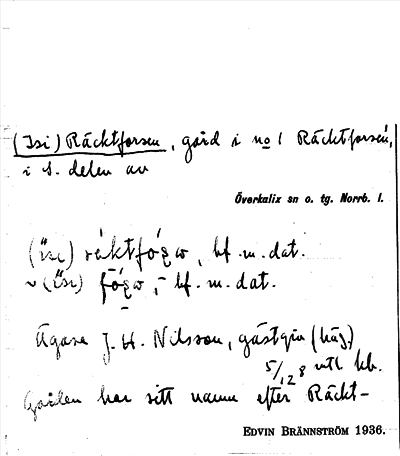 (Isi) Räcktforsen, gård i no 1 Räcktforsen,
i s. delen av
Överkalix sn o. tg. Norrb. l.
bf. m. dat.
bf. m. dat.
Ägare J. H. Nilsson, gästgiv (häg)
5/128 mtl kb.
Gården har sitt namn efter Räckt-
EDVIN BRÄNNSTRÖM 1936.